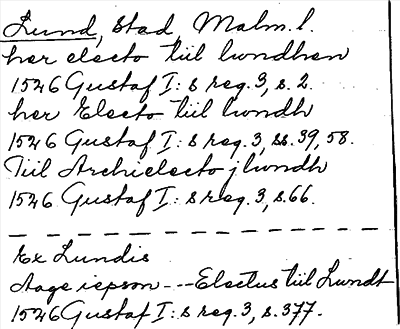 Lund, stad, Malm. l.
her electo tiil lwndhen
1526 Gustaf I:s reg. 3, s. 2.
her Electo tiil lwndh
1526 Gustaf I:s reg. 3, ss. 39, 58.
Tiil Archielecto j lwndh
1526 Gustaf I:s reg. 3, s. 66.
Ex Lundis
Aage iepson --- Electus tiil Lundt
1526 Gustaf I:s reg. 3, s. 377.